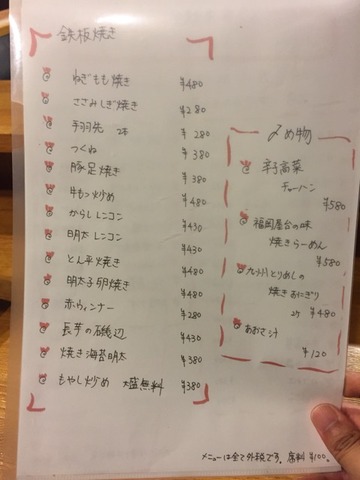 鉄板焼き
ねぎもも焼き ¥480
ささみしぎ焼き ¥280
手羽先 2本 ¥280
つくね ¥380
豚足焼き ¥380
牛もつ炒め ¥480
からしレンコン ¥430
明太レンコン ¥430
とん平焼き ¥480
明太子卵焼き ¥480
赤ウィンナー ¥280
長芋の磯辺 ¥430
焼き海苔明太 ¥380
もやし炒め 大盛無料 ¥380
〆め物
辛子高菜
チャーハン
¥580
福岡屋台の味
焼きらーめん
¥580
九州とりめしの
焼きおにぎり
2ケ ¥480
あおさ汁
¥120
メニューは全て外税です。席料 ¥100。